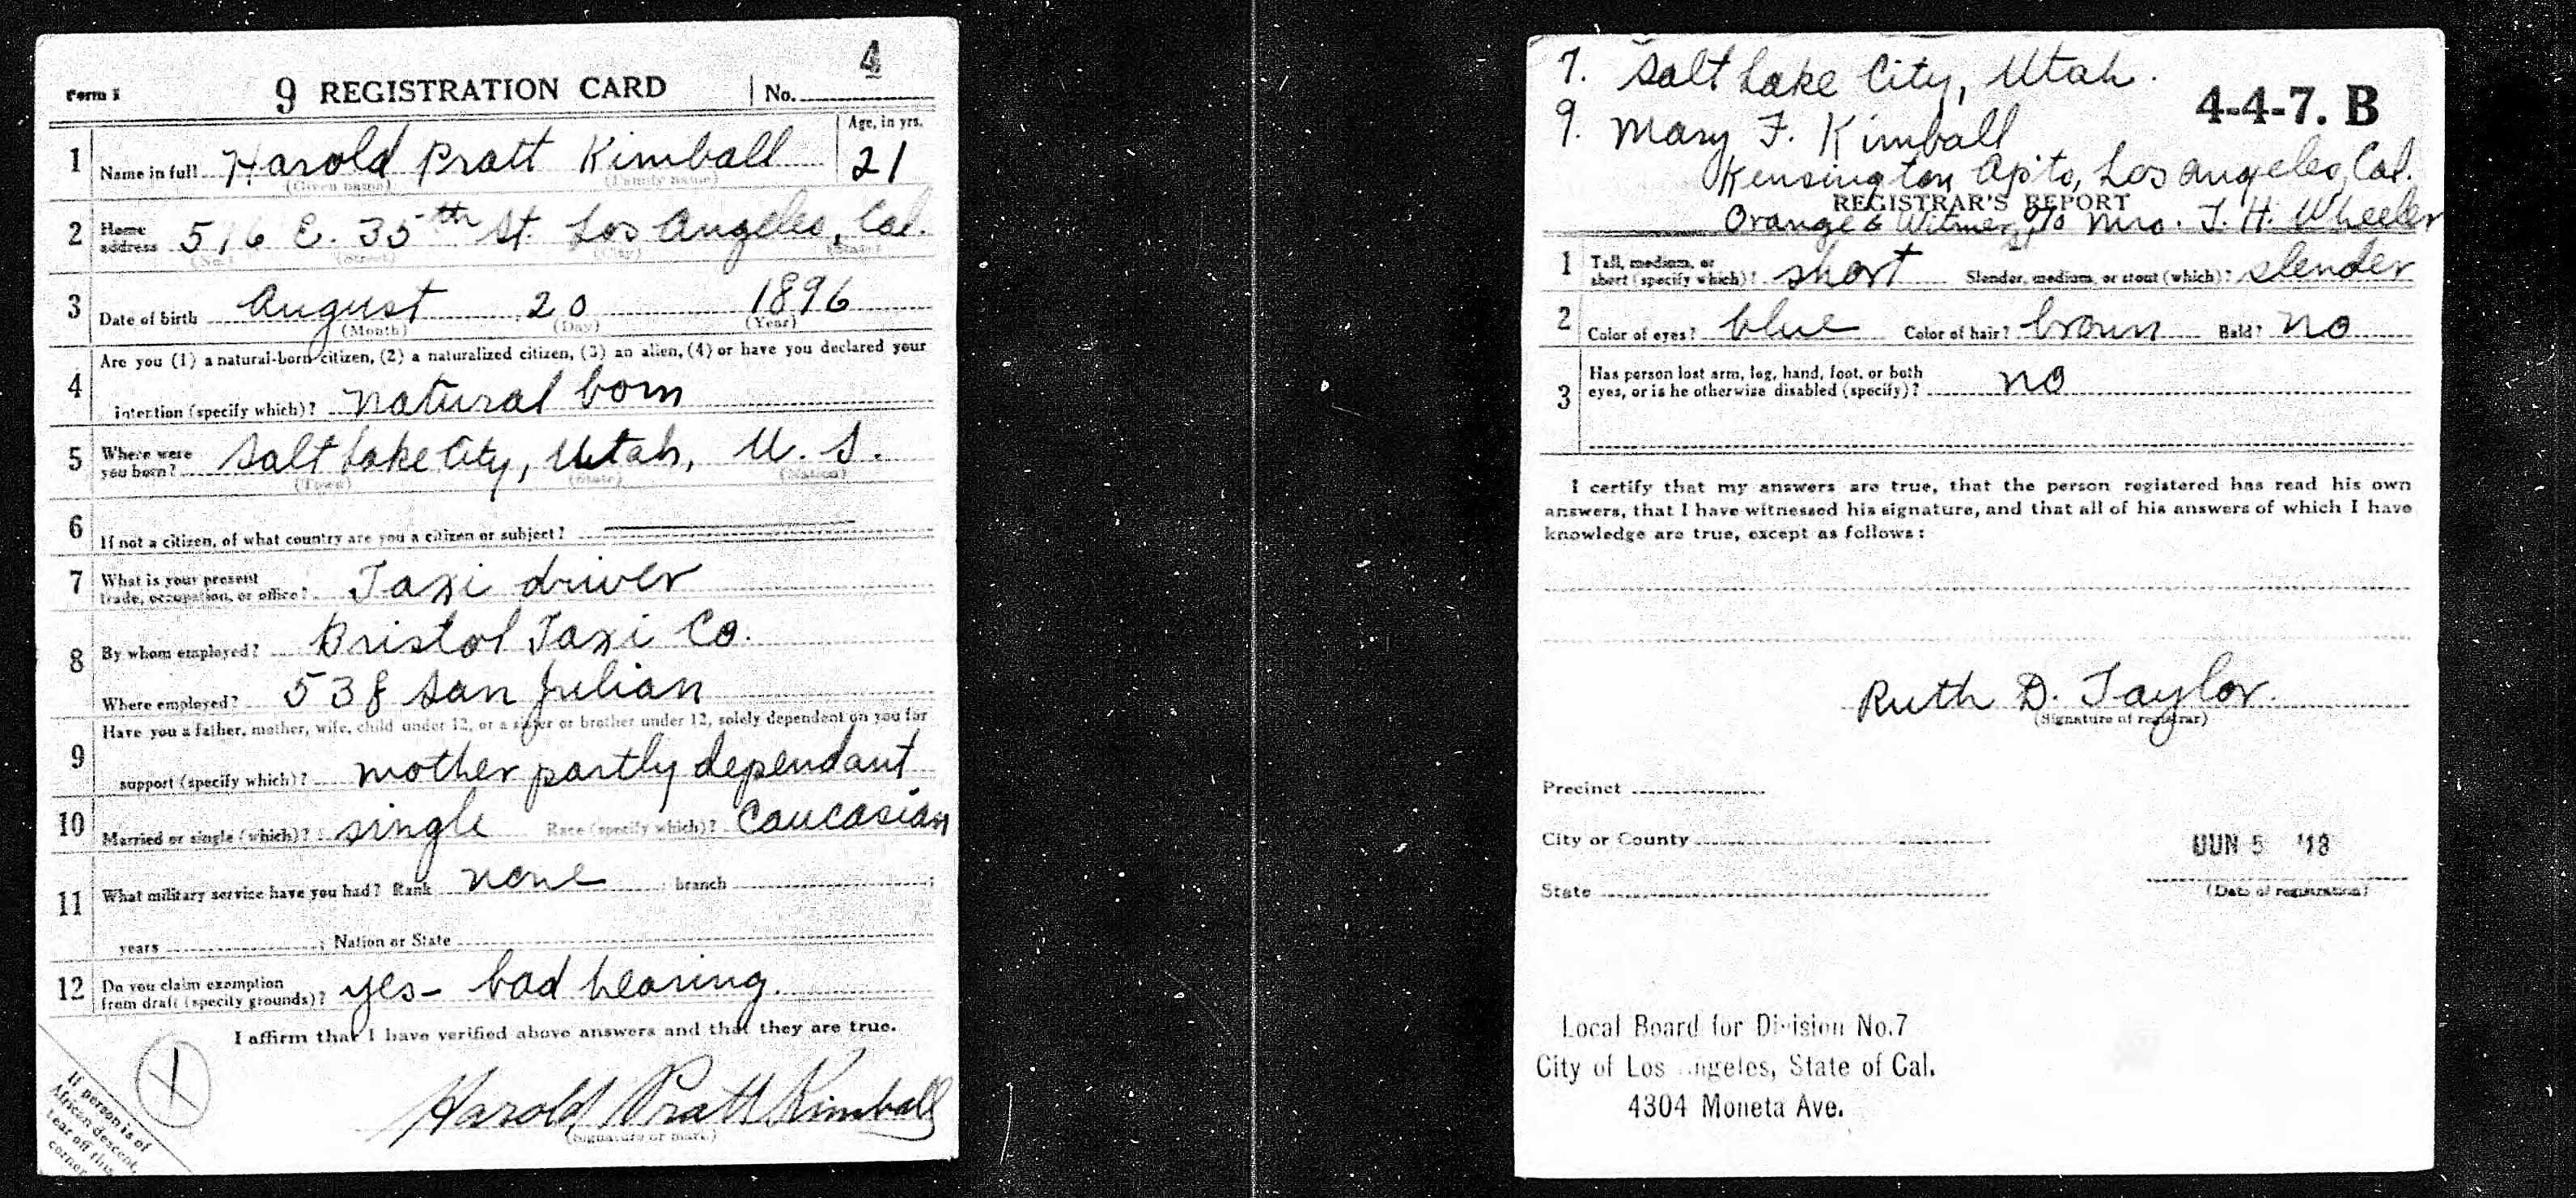 Form 1 9 REGISTRATION CARD No. 4
1 Name in full Harold Pratt Kimball Age, in yrs. 21
(Given name) (Family name)
2 Home address 516 E. 35th St. Los Angeles, Cal.
(No.) (Street) (City) (State)
3 Date of birth August 20 1896
(Month) (Day) (Year)
4 Are you (1) a natural-born citizen, (2) a naturalized citizen, (3) an alien, (4) or have you declared your
intention (specify which)? natural born
5 Where were you born? Salt Lake City, Utah, U. S.
(Town) (State) (Nation)
6 If not a citizen, of what country are you a citizen or subject?
7 What is your present trade, occupation, or office? Taxi driver
8 By whom employed? Bristol Taxi Co.
Where employed? 538 San Julian
9 Have you a father, mother, wife, child under 12, or a sister or brother under 12, solely dependent on you for
support (specify which)? mother partly dependant
10 Married or single (which)? single Race (specify which)? Caucasian
11 What military service have you had? Rank none branch ;
years ; Nation or State
12 Do you claim exemption from draft (specify grounds)? yes - bad hearing.
I affirm that I have verified above answers and that they are true.
Harold Pratt Kimball
(Signature or mark.)
If person is of
African descent,
tear off this
corner
7. Salt Lake City, Utah.
4-4-7. B
9. Mary F. Kimball
Kensington Apts, Los Angeles, Cal.
REGISTRAR'S REPORT
Orange & Witmer, % Mrs. T. H. Wheeler
1 Tall, medium, or short (specify which)? short Slender, medium, or stout (which)? slender
2 Color of eyes? blue Color of hair? brown Bald? no
3 Has person lost arm, leg, hand, foot, or both
eyes, or is he otherwise disabled (specify)? no
I certify that my answers are true, that the person registered has read his own
answers, that I have witnessed his signature, and that all of his answers of which I have
knowledge are true, except as follows:
Ruth D. Taylor.
(Signature of registrar)
Precinct
City or County
JUN 5 '18
State
(Date of registration)
Local Board for Division No.7
City of Los Angeles, State of Cal.
4304 Moneta Ave.